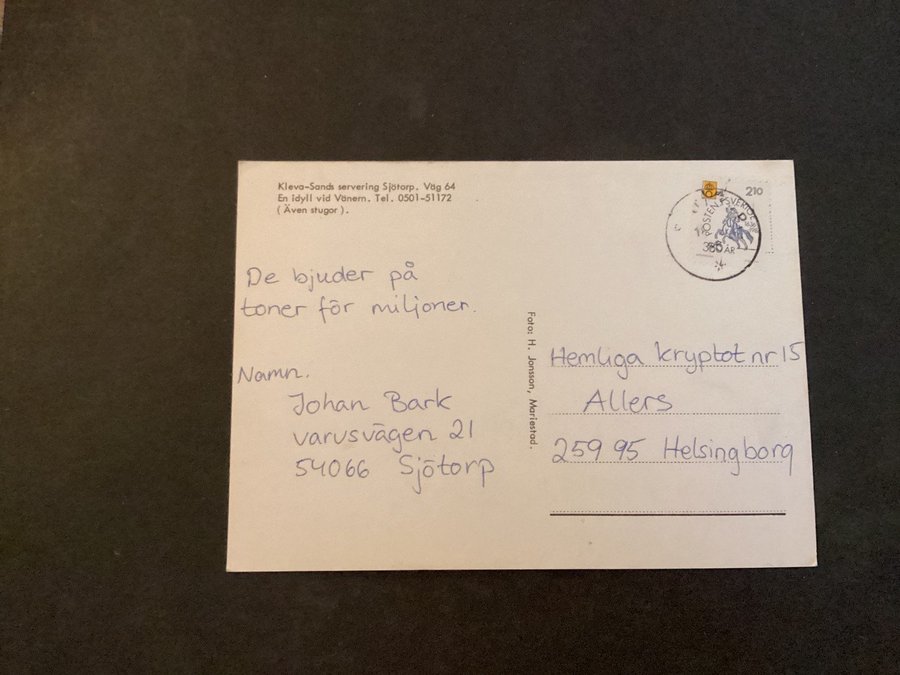 Kleva-Sands servering Sjötorp. Väg 64
En idyll vid Vänern. Tel. 0501-51172
( Även stugor ).
210
POSTEN SVERIGE
350 ÅR
De bjuder på
toner för miljoner.
Namn.
Johan Bark
varusvägen 21
54066 Sjötorp
Foto: H. Jonsson, Mariestad.
Hemliga kryptot nr 15
Allers
259 95 Helsingborg